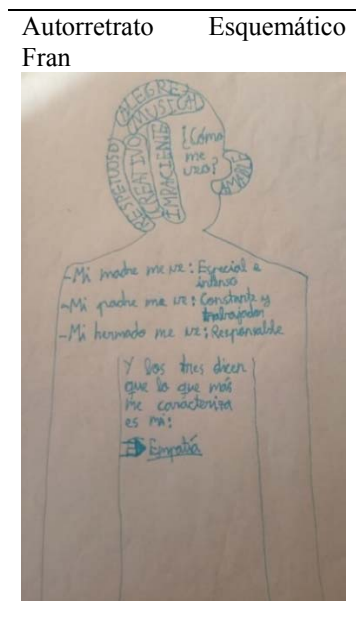 Autorretrato Esquemático
Fran
ALEGRE
MUSICAL
RESPETUOSO
CREATIVO
IMPACIENTE
¿Cómo
me
veo?
-Mi madre me ve: Especial e
intenso
-Mi padre me ve: Constante y
trabajador
-Mi hermado me ve: Responsable
Y los tres dicen
que lo que más
me carácteriza
es mi:
Empatiá